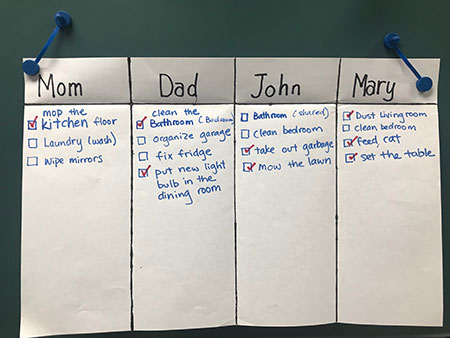 Mom
mop the
kitchen floor
Laundry (wash)
wipe mirrors
Dad
clean the
Bathroom (Bedroom)
organize garage
fix fridge
put new light
bulb in the
dining room
John
Bathroom (shared)
clean bedroom
take out garbage
mow the lawn
Mary
Dust living room
clean bedroom
feed cat
set the table